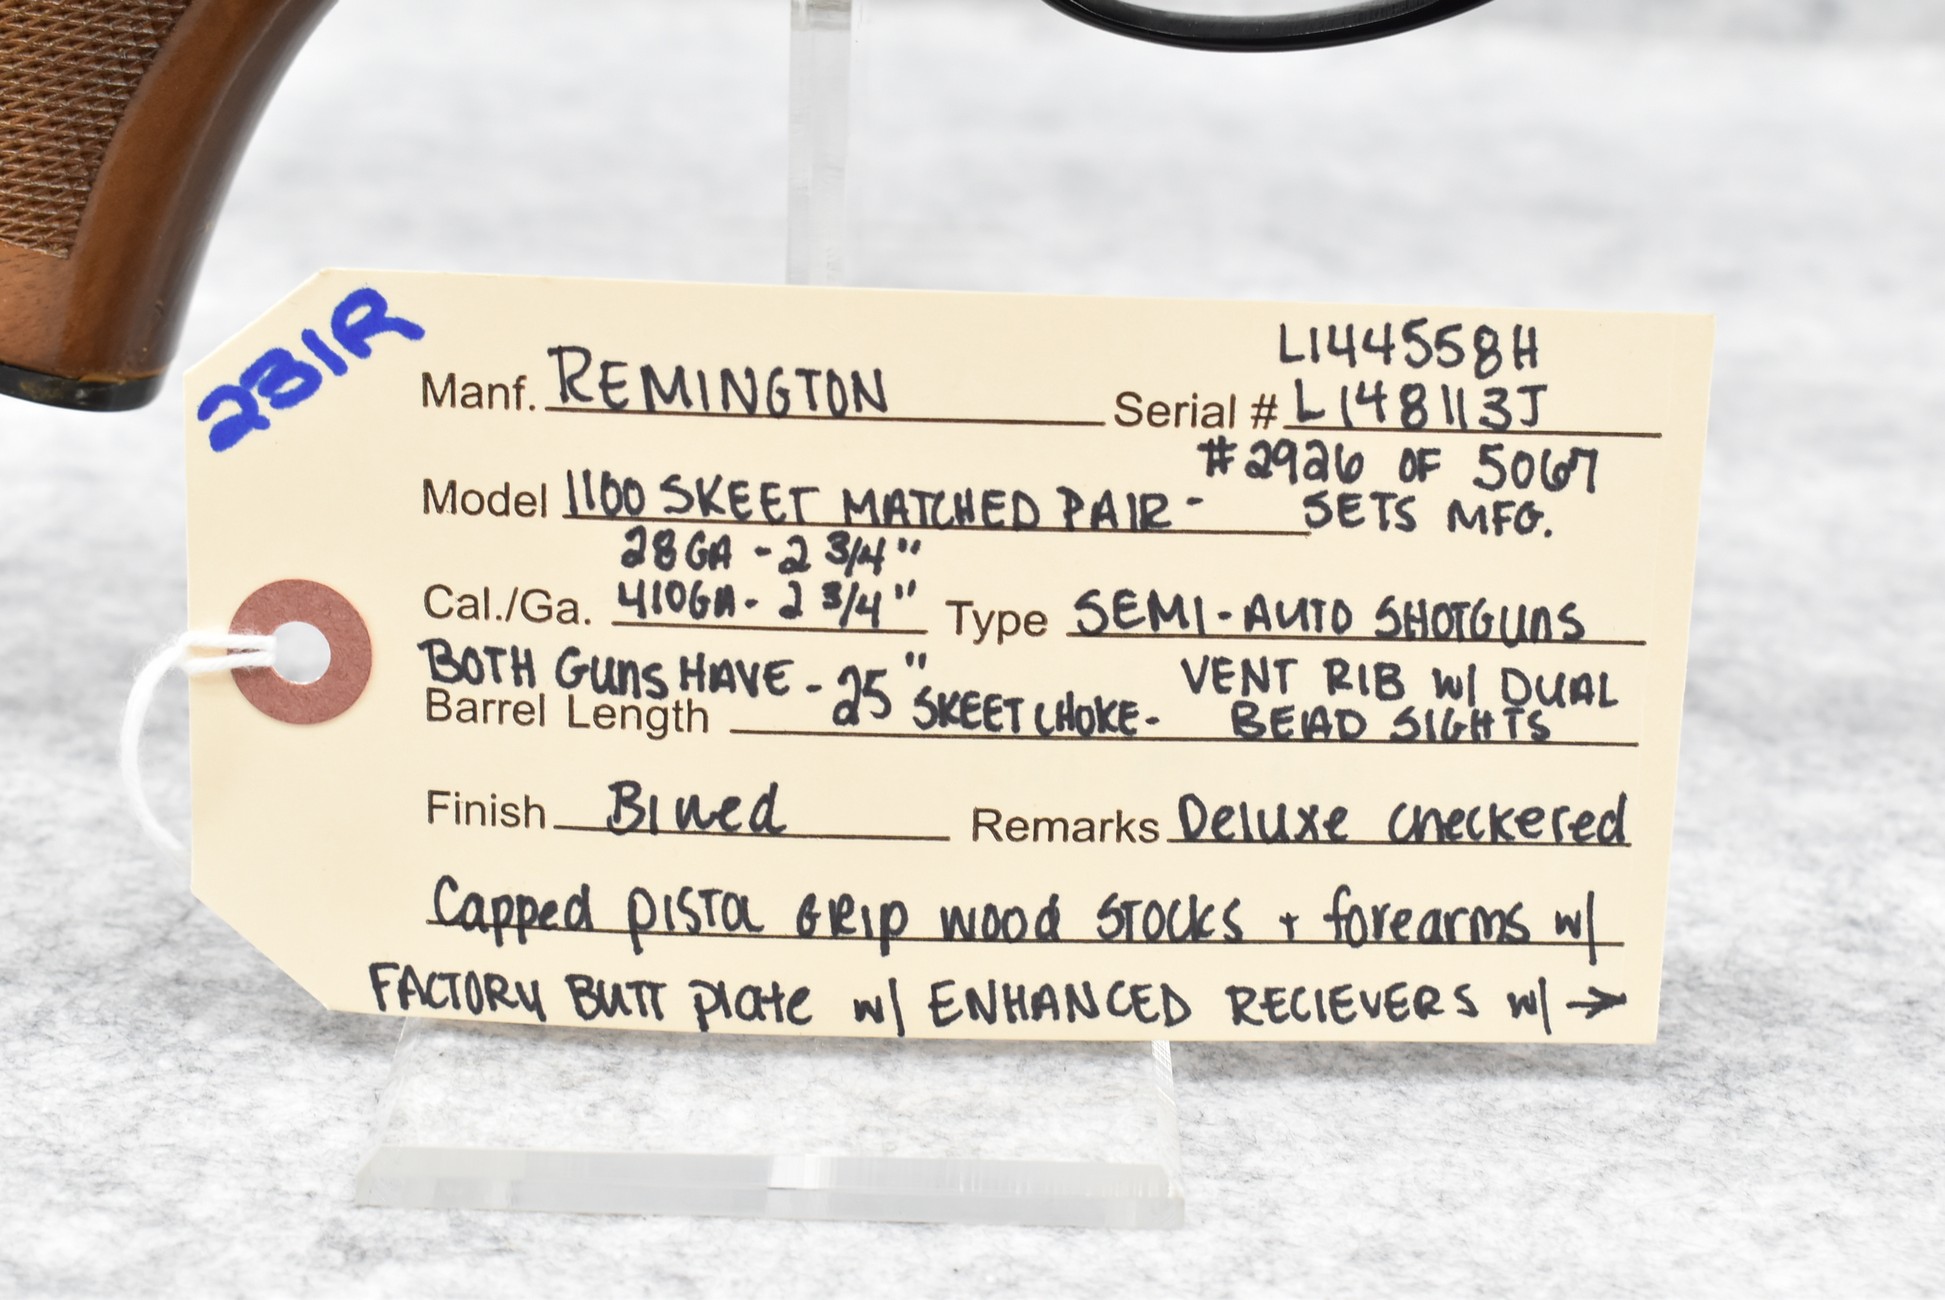 281R
L144558H
Manf. REMINGTON Serial # L148113J
#2926 OF 5067
Model 1100 SKEET MATCHED PAIR - SETS MFG.
28GA - 2 3/4"
Cal./Ga. 410GA - 2 3/4" Type SEMI-AUTO SHOTGUNS
BOTH GUNS HAVE - 25" VENT RIB W/ DUAL
Barrel Length SKEET CHOKE - BEAD SIGHTS
Finish Blued Remarks Deluxe checkered
Capped PISTOL GRIP WOOD STOCKS + forearms w/
FACTORY BUTT Plate w/ ENHANCED RECIEVERS w/ →